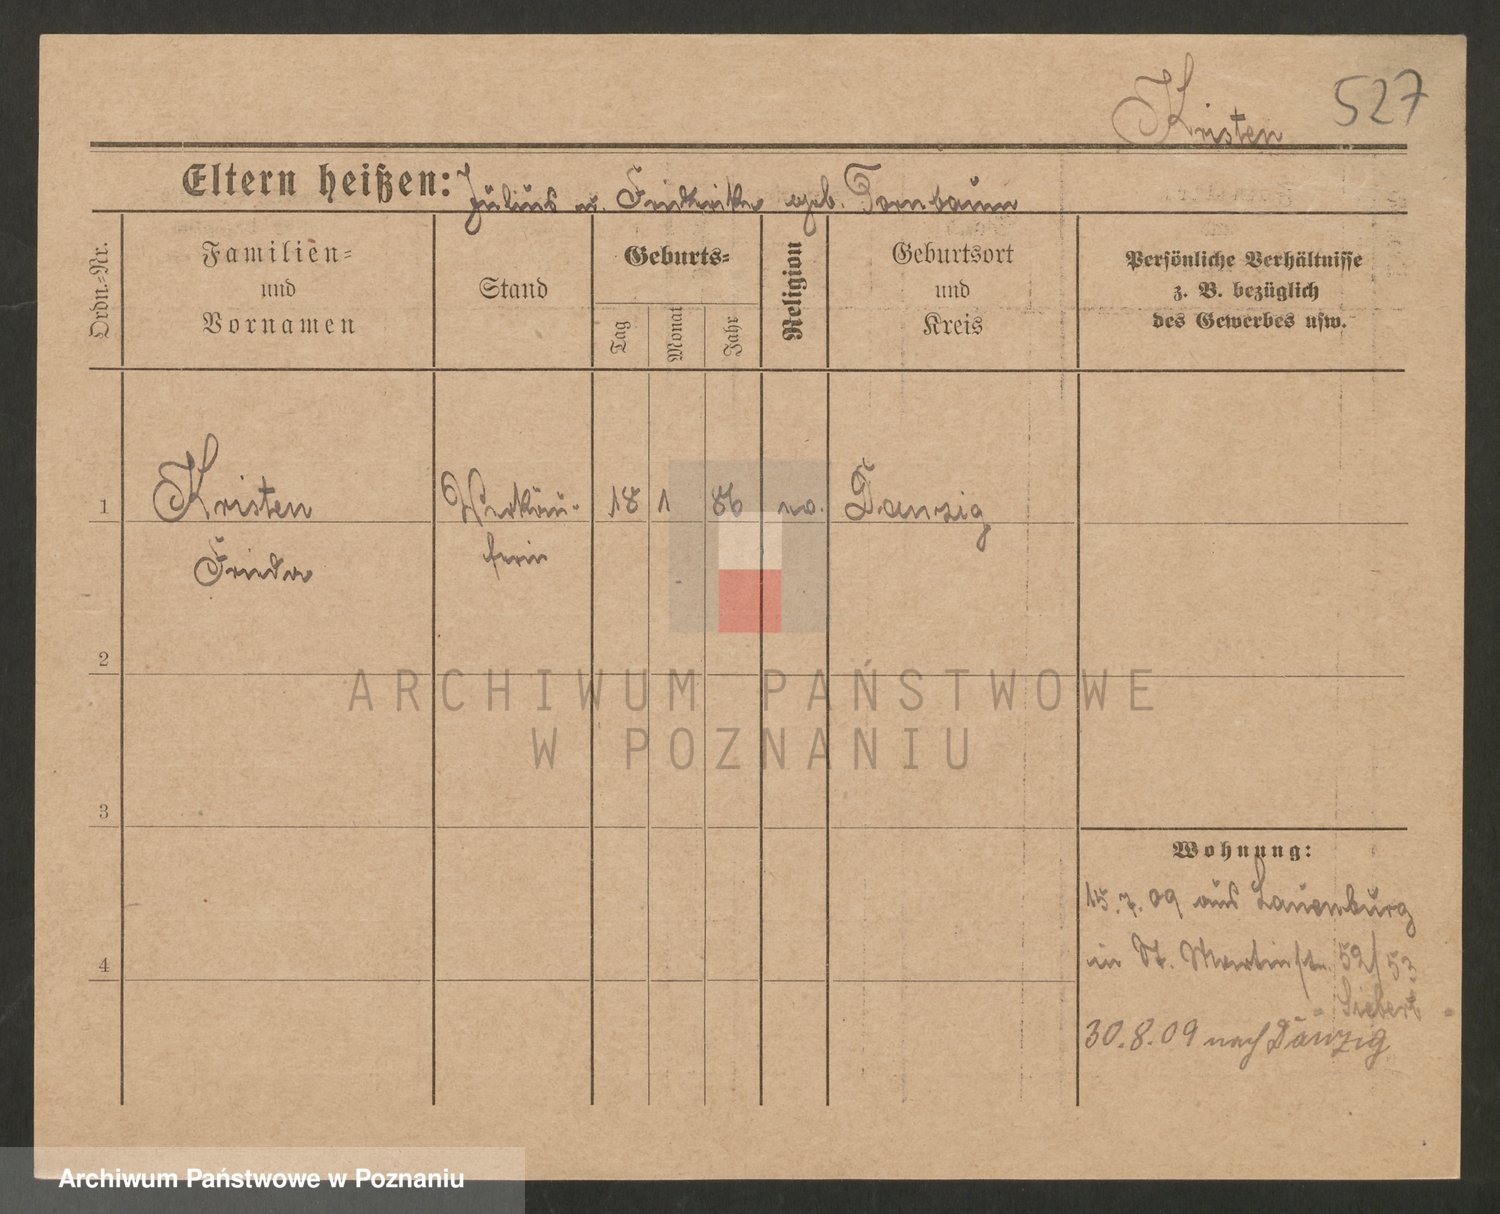 527
Kristen
Eltern heißen: Julius u. Friderike geb. Tornbaum
Ordn.-Nr.
Familien-
und
Vornamen
Stand
Geburts-
Tag
Monat
Jahr
Religion
Geburtsort
und
Kreis
Persönliche Verhältnisse
z. B. bezüglich
des Gewerbes usw.
1 Kristen Verkäu- 18 1 86 ev. Danzig
Frieda ferin
2
3
4
Wohnung:
15.7.09 aus Lauenburg
in St. Martinstr. 52/53
- Siebert -
30.8.09 nach Danzig
ARCHIWUM PAŃSTWOWE
W POZNANIU
Archiwum Państwowe w Poznaniu